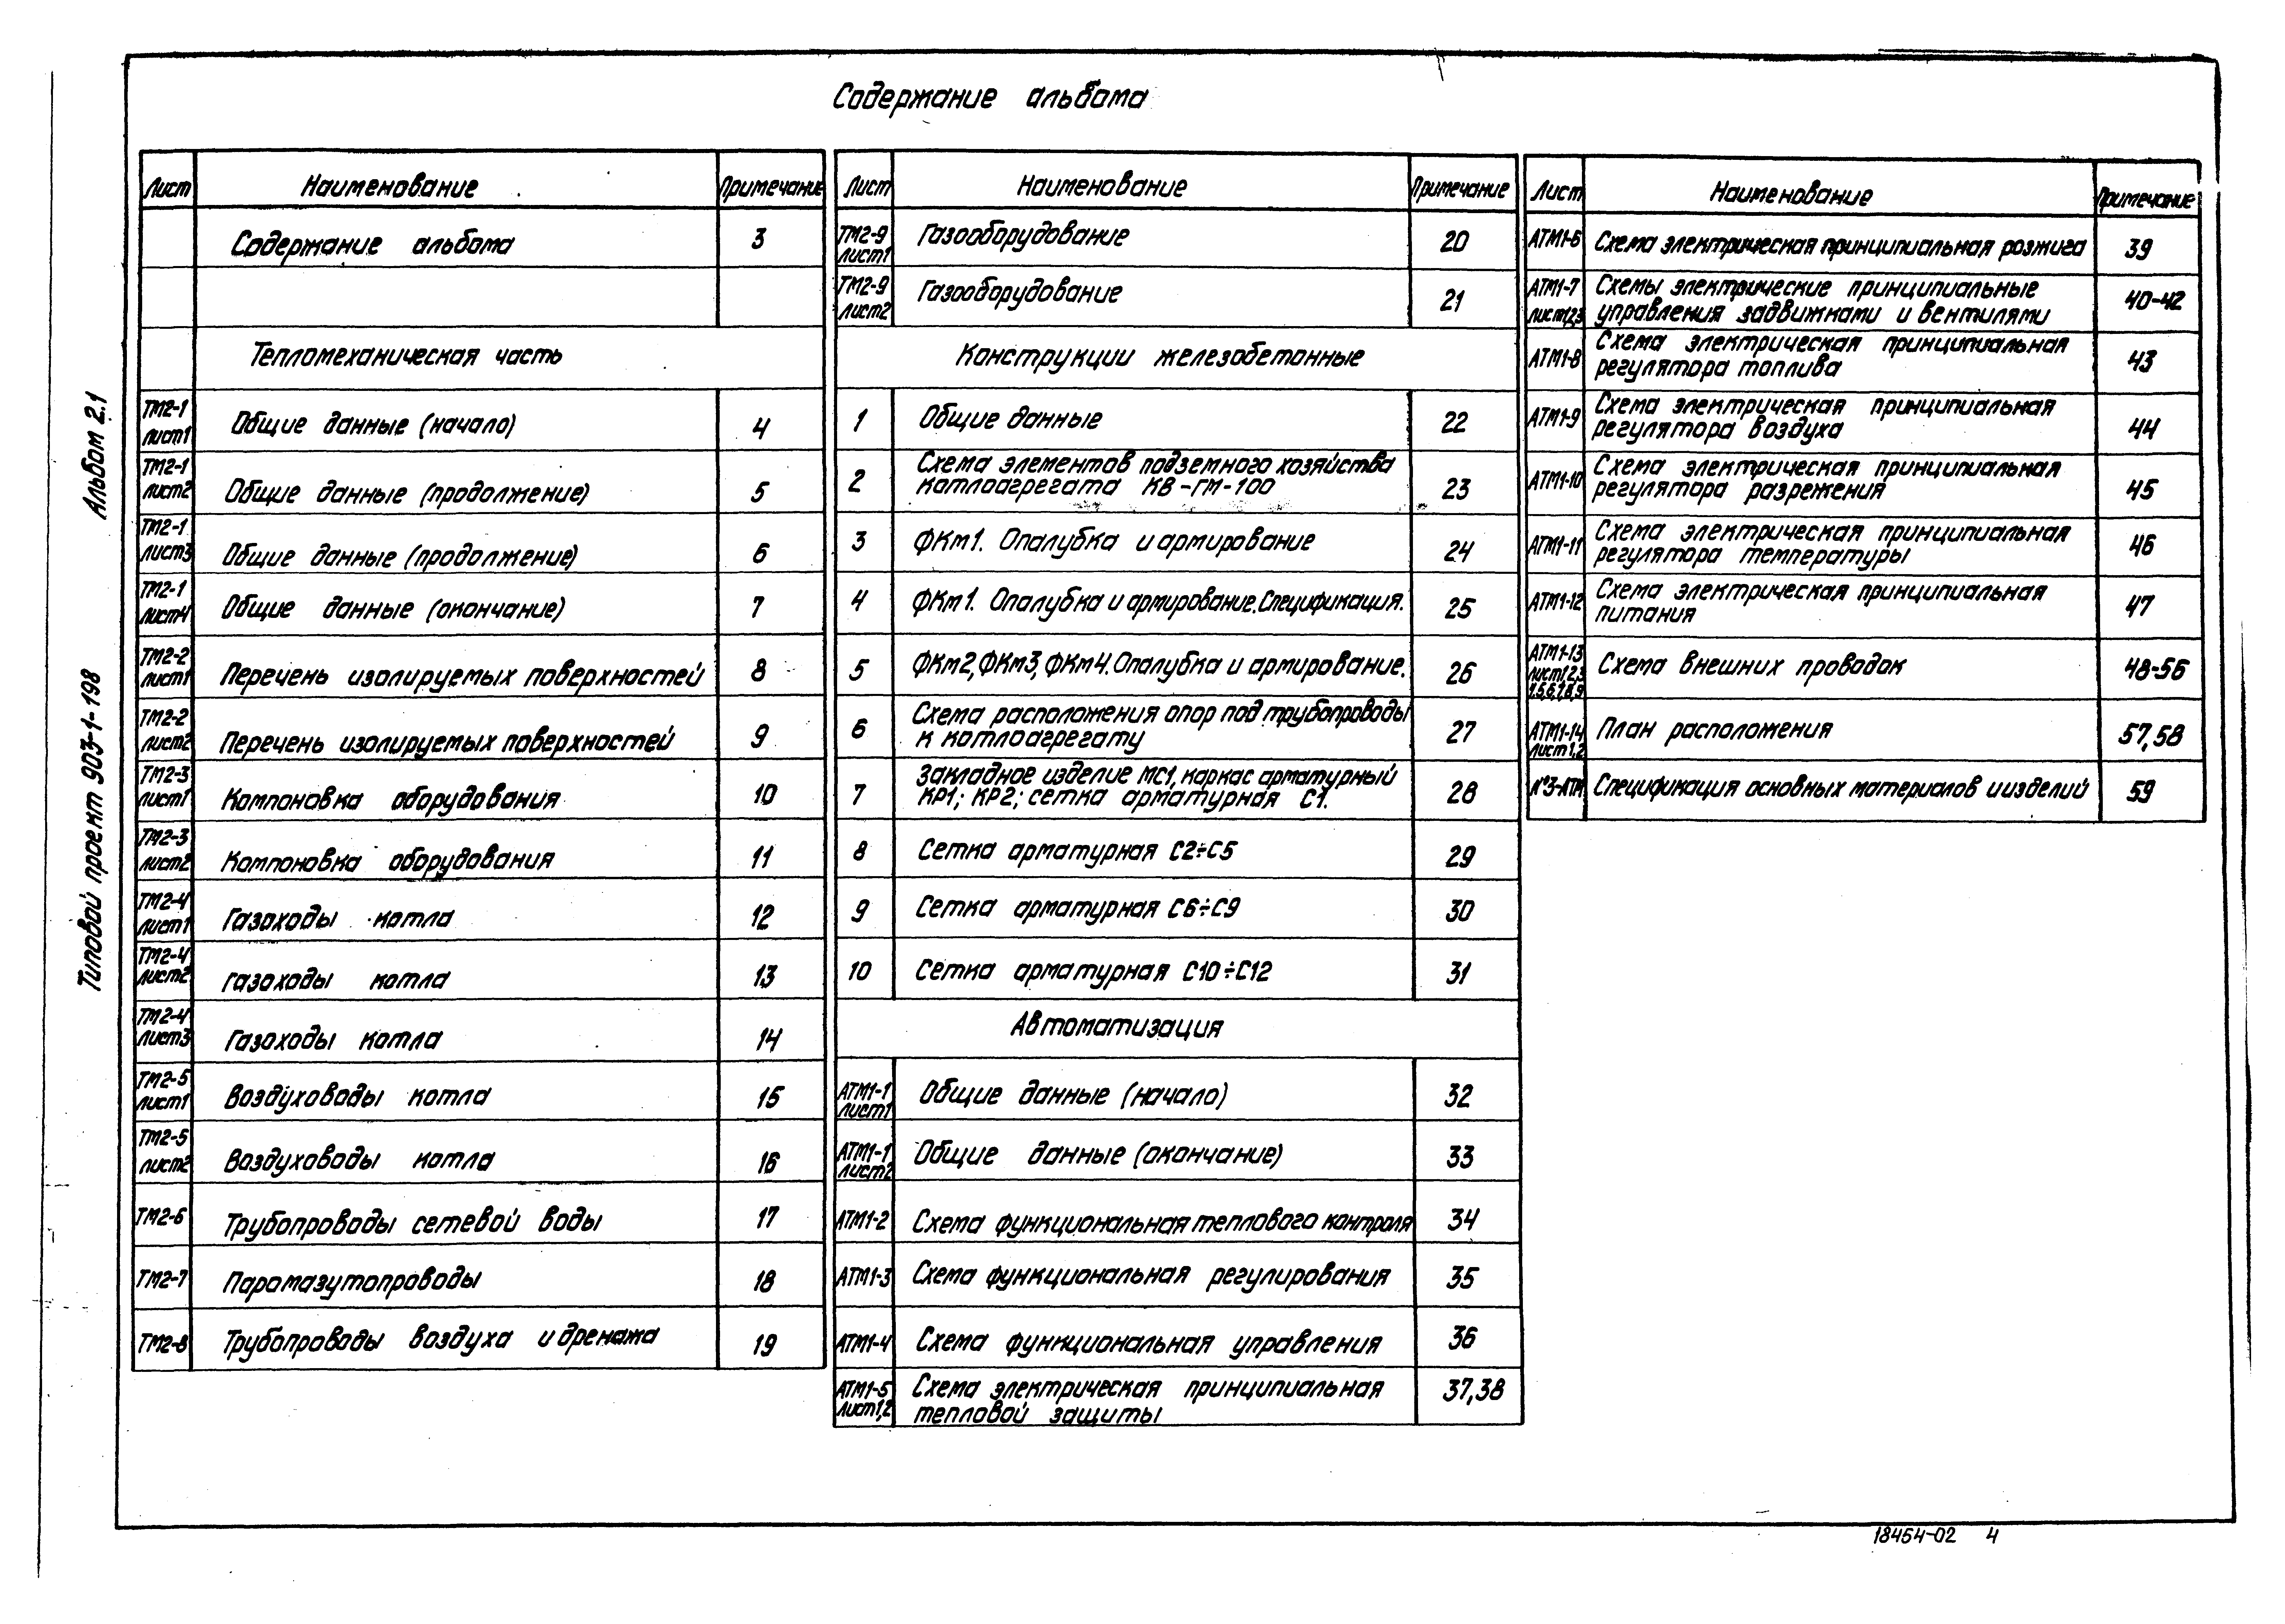 Содержание альбома
Лист Наименование Примечание
Содержание альбома 3
Тепломеханическая часть
ТМ2-1 лист1 Общие данные (начало) 4
ТМ2-1 лист2 Общие данные (продолжение) 5
ТМ2-1 лист3 Общие данные (продолжение) 6
ТМ2-1 лист4 Общие данные (окончание) 7
ТМ2-2 лист1 Перечень изолируемых поверхностей 8
ТМ2-2 лист2 Перечень изолируемых поверхностей 9
ТМ2-3 лист1 Компоновка оборудования 10
ТМ2-3 лист2 Компоновка оборудования 11
ТМ2-4 лист1 Газоходы котла 12
ТМ2-4 лист2 Газоходы котла 13
ТМ2-4 лист3 Газоходы котла 14
ТМ2-5 лист1 Воздуховоды котла 15
ТМ2-5 лист2 Воздуховоды котла 16
ТМ2-6 Трубопроводы сетевой воды 17
ТМ2-7 Паромазутопроводы 18
ТМ2-8 Трубопроводы воздуха и дренажа 19
Лист Наименование Примечание
ТМ2-9 лист1 Газооборудование 20
ТМ2-9 лист2 Газооборудование 21
Конструкции железобетонные
1 Общие данные 22
2 Схема элементов подземного хозяйства
котлоагрегата КВ-ГМ-100 23
3 ФКм1. Опалубка и армирование 24
4 ФКм1. Опалубка и армирование. Спецификация. 25
5 ФКм2, ФКм3, ФКм4. Опалубка и армирование. 26
6 Схема расположения опор под трубопроводы
к котлоагрегату 27
7 Закладное изделие МС1, каркас арматурный
КР1; КР2; сетка арматурная С1. 28
8 Сетка арматурная С2÷С5 29
9 Сетка арматурная С6÷С9 30
10 Сетка арматурная С10÷С12 31
Автоматизация
АТМ1-1 лист1 Общие данные (начало) 32
АТМ1-1 лист2 Общие данные (окончание) 33
АТМ1-2 Схема функциональная теплового контроля 34
АТМ1-3 Схема функциональная регулирования 35
АТМ1-4 Схема функциональная управления 36
АТМ1-5 Лист1,2 Схема электрическая принципиальная
тепловой защиты 37,38
Лист Наименование Примечание
АТМ1-6 Схема электрическая принципиальная розжига 39
АТМ1-7 лист1,2,3 Схемы электрические принципиальные
управления задвижками и вентилями 40-42
АТМ1-8 Схема электрическая принципиальная
регулятора топлива 43
АТМ1-9 Схема электрическая принципиальная
регулятора воздуха 44
АТМ1-10 Схема электрическая принципиальная
регулятора разрежения 45
АТМ1-11 Схема электрическая принципиальная
регулятора температуры 46
АТМ1-12 Схема электрическая принципиальная
питания 47
АТМ1-13 Лист1,2,3 Схема внешних проводок 48-56
АТМ1-14 Лист1,2 План расположения 57,58
№3-АТМ Спецификация основных материалов и изделий 59
Типовой проект 903-1-198 Альбом 2.1
18454-02 4